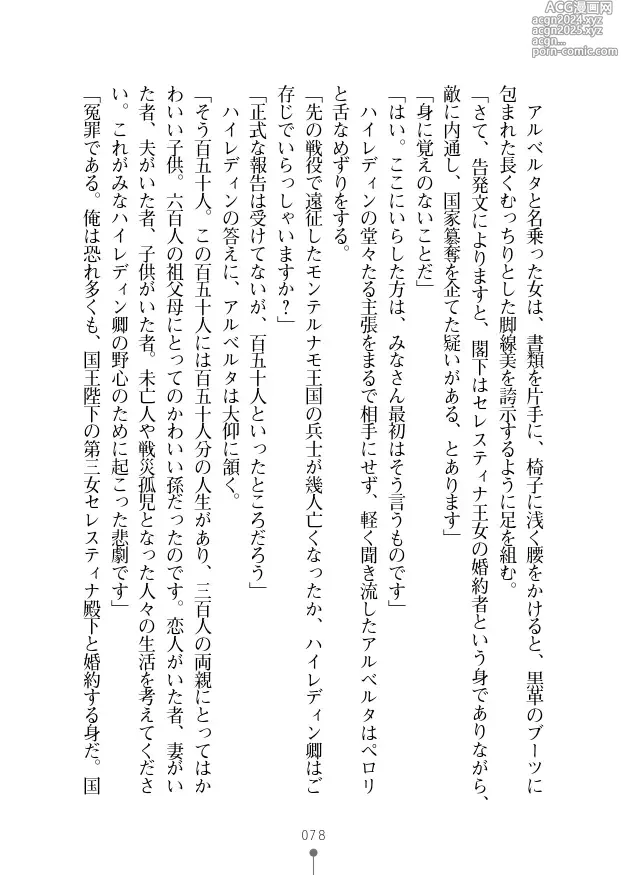 ACG漫画网
acgn2024.xyz
acgn2025.xyz
acgn....link
porn-comic.com
アルベルタと名乗った女は、書類を片手に、椅子に浅く腰をかけると、黒革のブーツに
包まれた長くむっちりとした脚線美を誇示するように足を組む。
「さて、告発文によりますと、閣下はセレスティナ王女の婚約者という身でありながら、
敵に内通し、国家簒奪を企てた疑いがある、とあります」
「身に覚えのないことだ」
「はい。ここにいらした方は、みなさん最初はそう言うものです」
ハイレディンの堂々たる主張をまるで相手にせず、軽く聞き流したアルベルタはペロリ
と舌なめずりをする。
「先の戦役で遠征したモンテルナモ王国の兵士が幾人亡くなったか、ハイレディン卿はご
存じでいらっしゃいますか?」
「正式な報告は受けてないが、百五十人といったところだろう」
ハイレディンの答えに、アルベルタは大仰に頷く。
「そう百五十人。この百五十人には百五十人分の人生があり、三百人の両親にとってはか
わいい子供。六百人の祖父母にとってのかわいい孫だったのです。恋人がいた者、妻がい
た者、夫がいた者、子供がいた者。未亡人や戦災孤児となった人々の生活を考えてくださ
い。これがみなハイレディン卿の野心のために起こった悲劇です」
「冤罪である。俺は恐れ多くも、国王陛下の第三女セレスティナ殿下と婚約する身だ。国
078